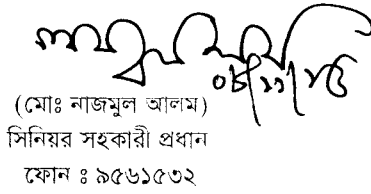 (মোঃ নাজমুল আলম)
সিনিয়র সহকারী প্রধান
ফোন ঃ ৯৫৬১৫৩২